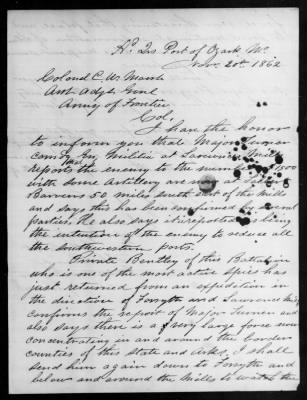 Hd Qrs Post of Ozark Mo.
Nov. 20th 1862
Colonel C. W. Marsh
Asst Adjt Genl
Army of Frontier
Col;
I have the honor
to inform you that Major Turner
comdg Mo Militia at Lawrence Mills
reports the enemy to the
with some Artillery are now at
Barrens 50 miles south of the Mills
and says this has been confirmed by several
parties. He also says it is reported as being
the intention of the enemy to reduce all
the southwestern posts.
Private Bentley of this Battalion
who is one of the most active spies has
just returned from an expedition in
the direction of Forsyth and Lawrence Mills
confirms the report of Major Turner and
also says there is a very large force now
concentrating in and around the border
counties of this State and Arks. I shall
send him again down to Forsyth and
below and around the Mills to watch the